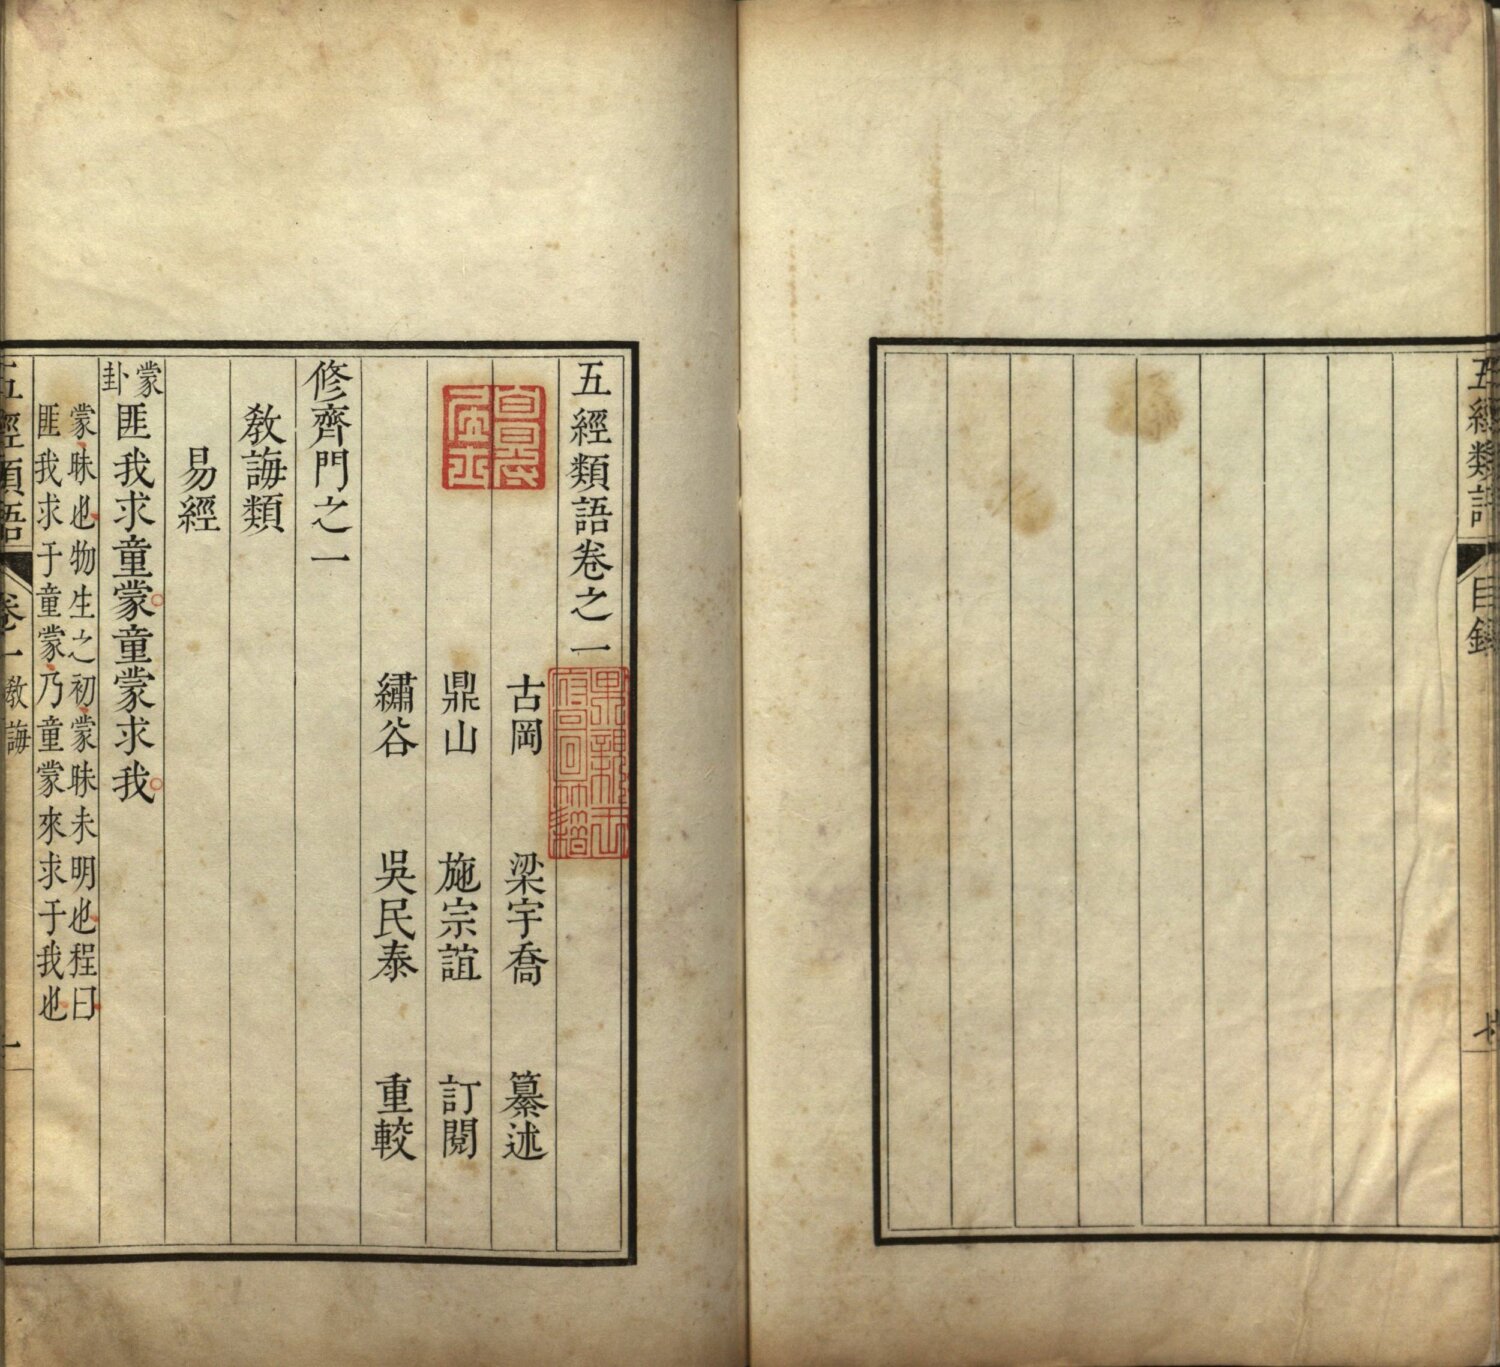 五經類語
目錄
五經類語卷之一
古岡 梁宇喬 纂述
鼎山 施宗誼 訂閱
繡谷 吳民泰 重較
修齊門之一
敎誨類
易經
蒙卦
匪我求童蒙童蒙求我
蒙昧也物生之初蒙昧未明也程曰
匪我求于童蒙乃童蒙來求于我也
五經類語
卷一
敎誨
一